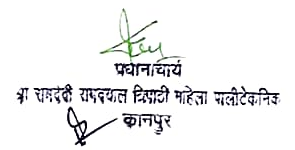 प्रधानाचार्य
श्री रामदेवी रामदयाल त्रिपाठी महिला पालीटेकनिक
कानपुर